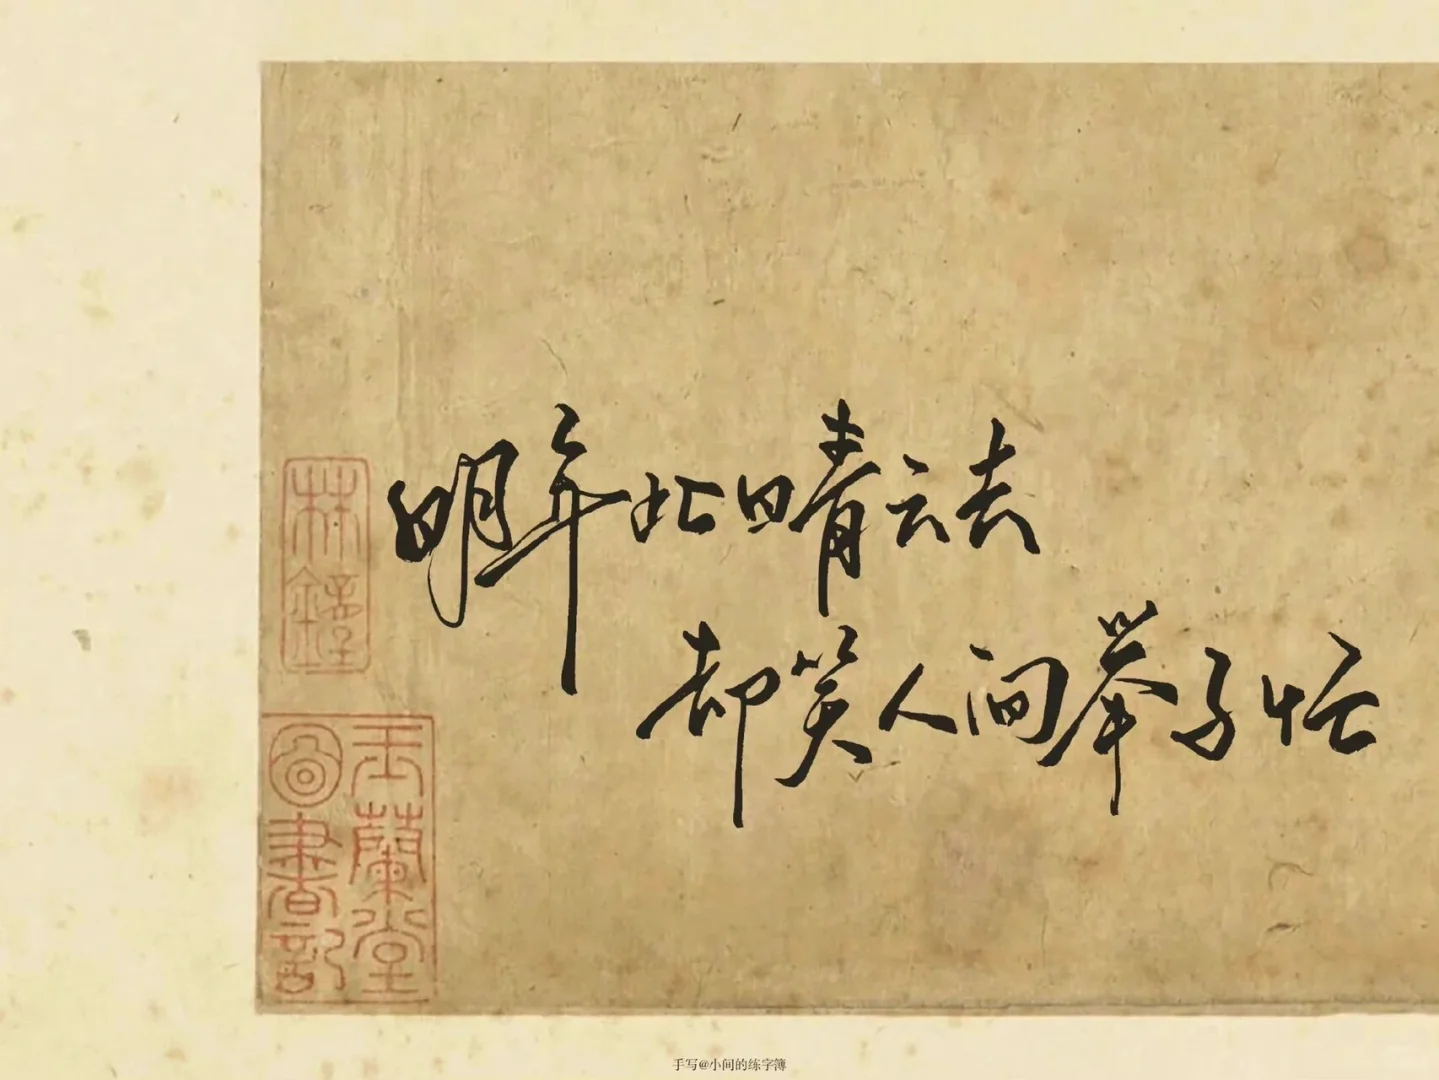 明年此日晴云去
却笑人间举子忙
玉蘭堂
圖書記
手写@小间的练字簿